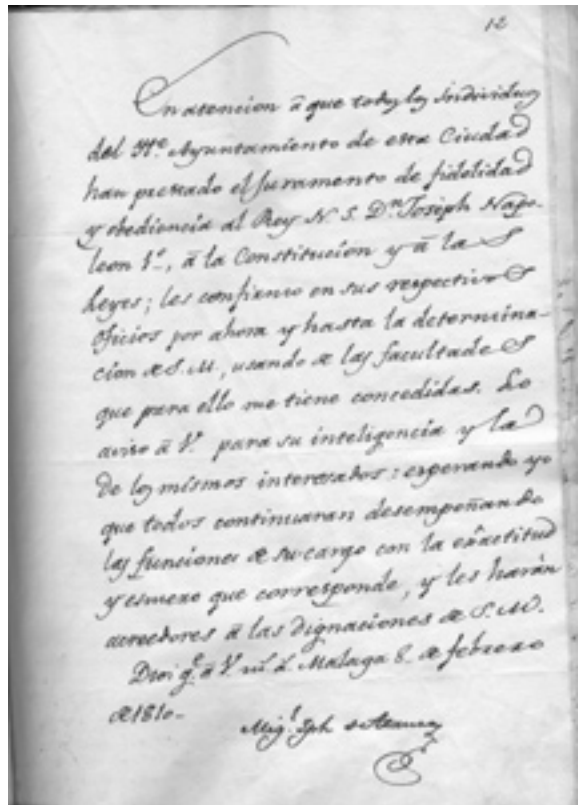 12
En atencion â que todos los individuos
del Ite. Ayuntamiento de esta Ciudad
han prestado el Juramento de fidelidad
y obediencia al Rey N. S. Dn. Joseph Napo-
leon 1º., â la Constitucion y â la s
Leyes; les confirmo en sus respectivo s
oficios por ahora y hasta la determina-
cion de S. M., usando de las facultade s
que para ello me tiene concedidas. Lo
aviso â V. para su inteligencia y la
de los mismos interesados: esperando yo
que todos continuaran desempeñando
las funciones de su cargo con la exâctitud
y esmero que corresponde, y les harán
acreedores â las dignaciones de S. M.
Dios g.e â V. m.s a.s Malaga 8. de febrero
de 1810.
Mig.l Jph de Azanza